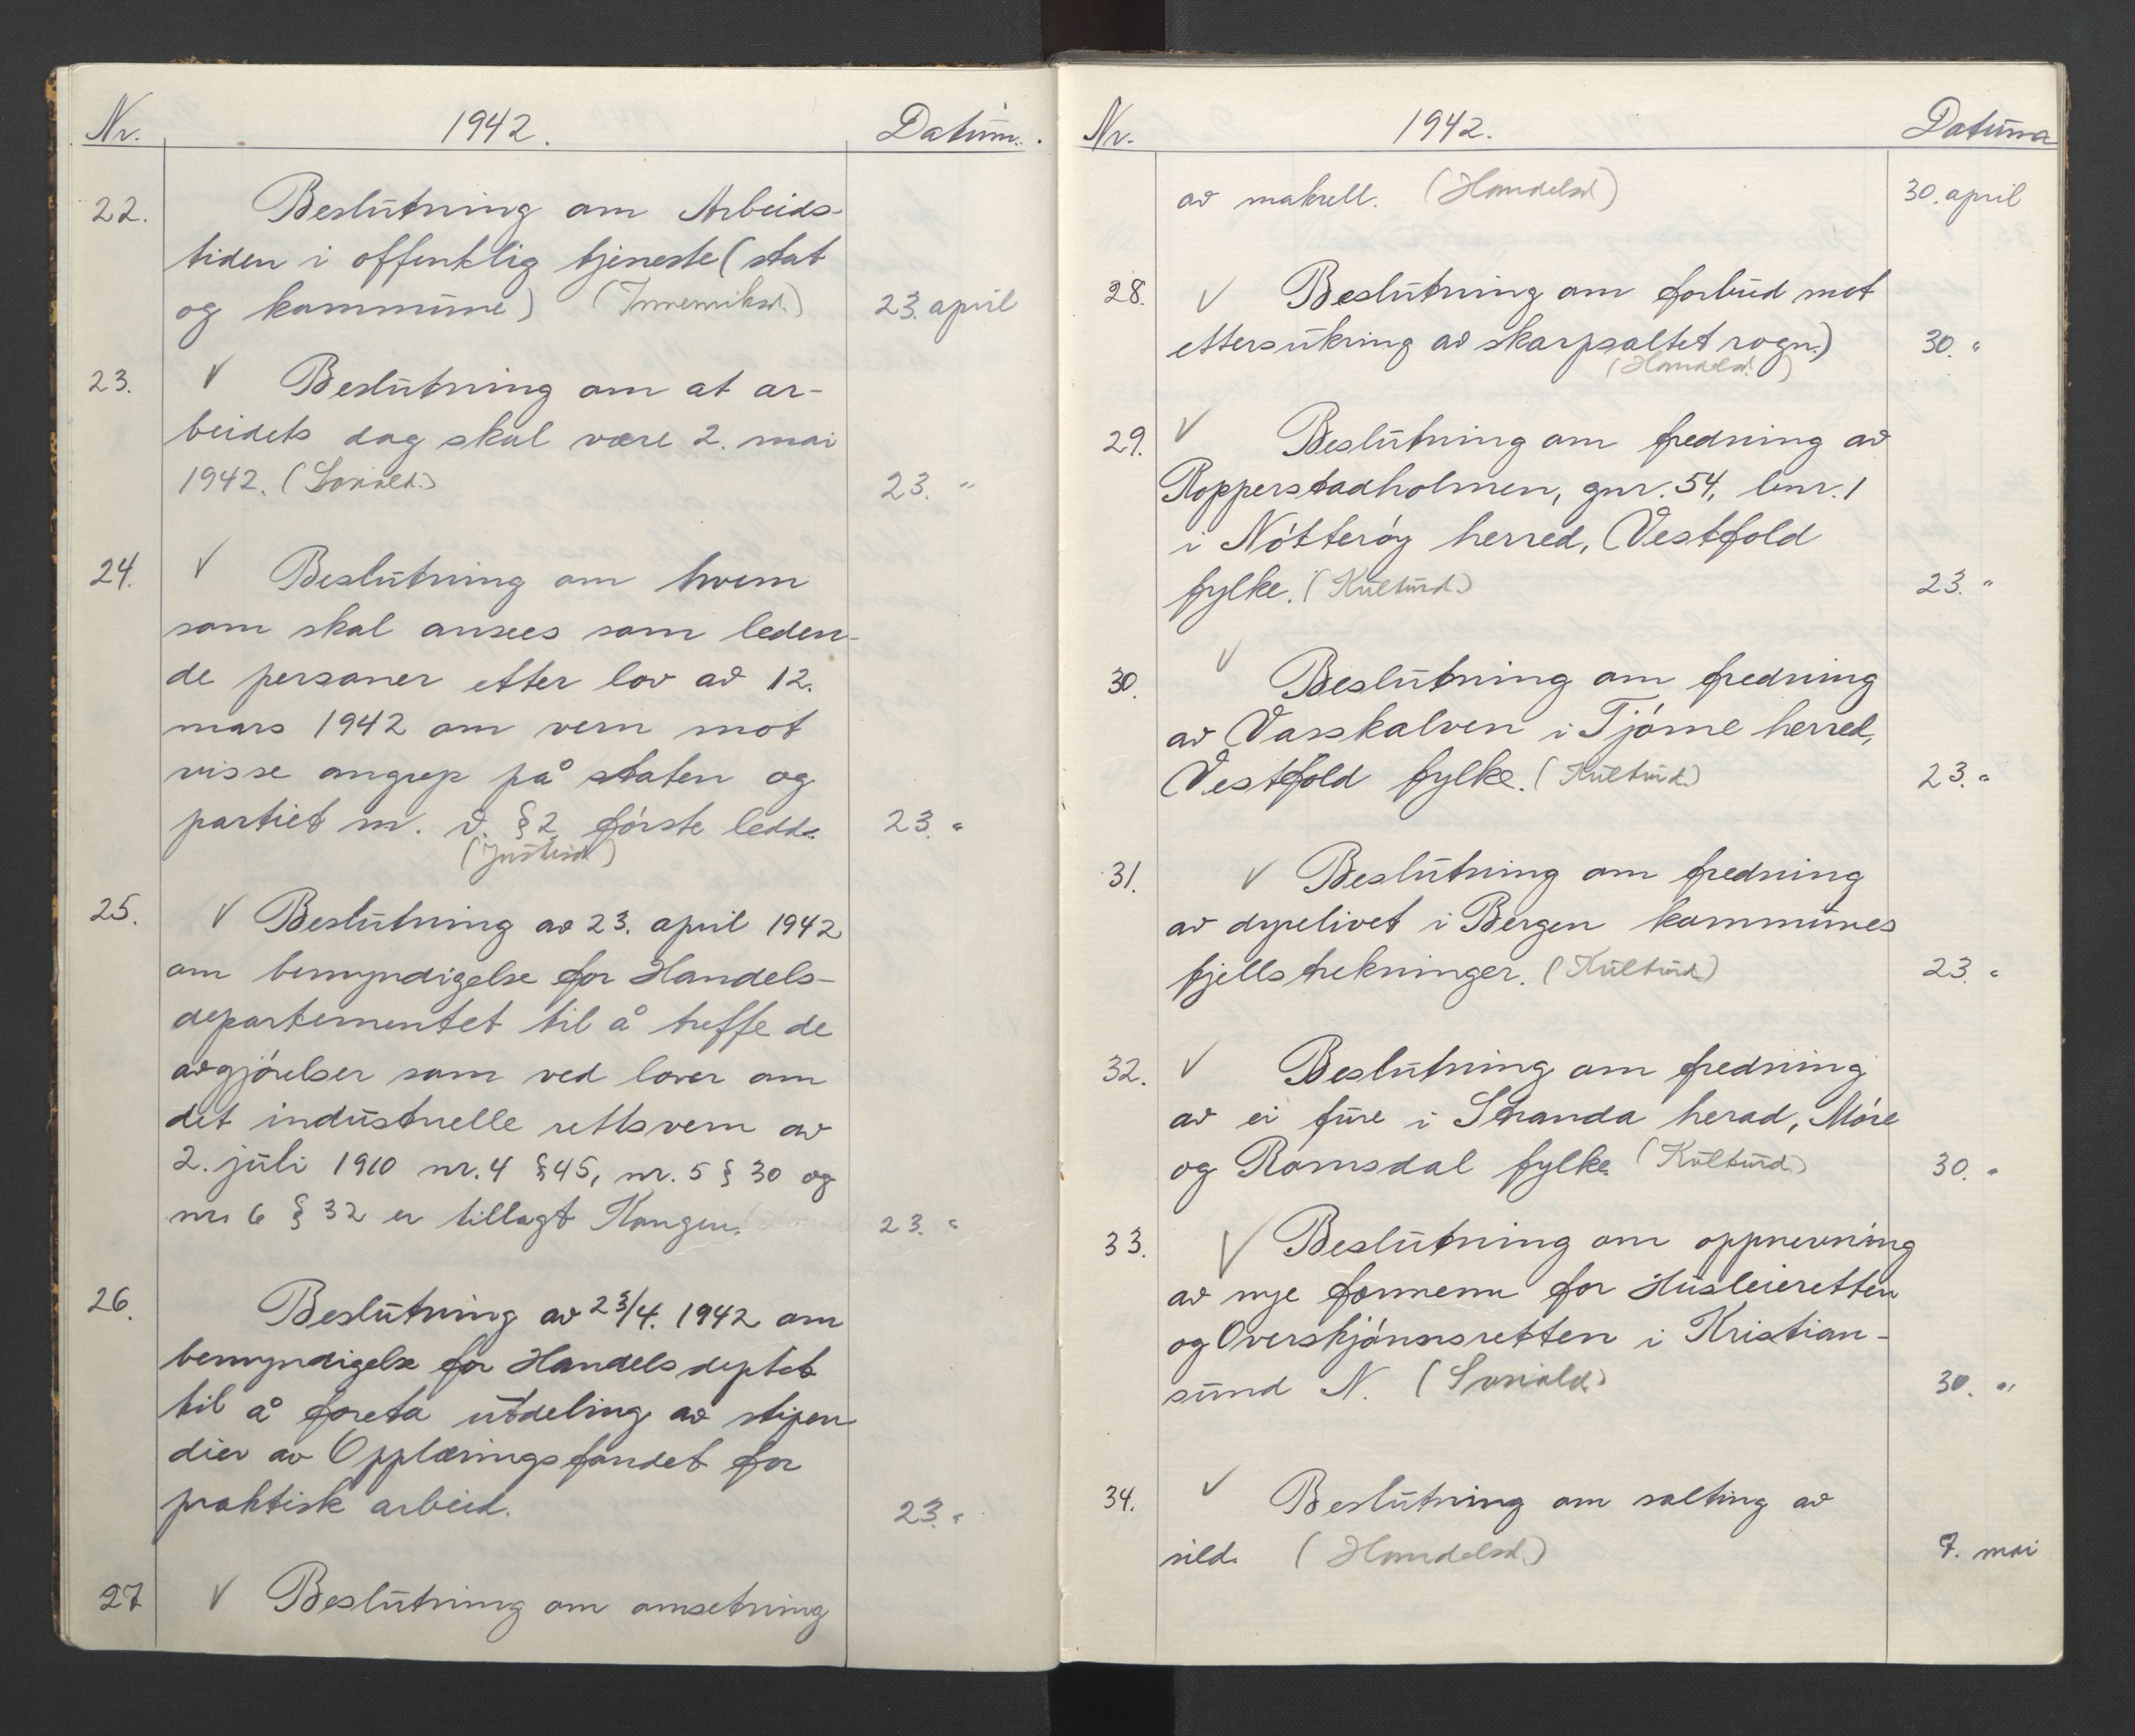 Nr. 1942. Datum.
22. Beslutning om Arbeids-
tiden i offentlig tjeneste (stat
og kommune) (Innenriksd.) 23. april
23. ✓ Beslutning om at ar-
beidets dag skal være 2. mai
1942. (Sosiald.) 23. "
24. ✓ Beslutning om hvem
som skal ansees som leden-
de personer etter lov av 12.
mars 1942 om vern mot
visse angrep på staten og
partiet m. v. § 2 første ledd.
(Justisd.) 23. "
25. ✓ Beslutning av 23. april 1942
om bemyndigelse for Handels-
departementet til å treffe de
avgjørelser som ved lover om
det industrielle rettsvern av
2. juli 1910 nr. 4 § 45, nr. 5 § 30 og
nr. 6 § 32 er tillagt Kongen. 23. "
26. Beslutning av 23/4. 1942 om
bemyndigelse for Handelsdeptet
til å foreta utdeling av stipen
dier av Opplæringsfondet for
praktisk arbeid. 23. "
27 ✓ Beslutning om omsetning
Nr. 1942. Datum
av makrell. (Handelsd.) 30. april
28. ✓ Beslutning om forbud mot
ettersukring av skarpsaltet rogn.) 30. "
(Handelsd.)
29. ✓ Beslutning om fredning av
Ropperstadholmen, gnr. 54, bnr. 1
i Nøtterøy herred, Vestfold
fylke. (Kulturd.) 23. "
30. ✓ Beslutning om fredning
av Vasskalven i Tjøme herred,
Vestfold fylke. (Kulturd.) 23. "
31. ✓ Beslutning om fredning
av dyrelivet i Bergen kommunes
fjellstrekninger. (Kulturd.) 23. "
32. ✓ Beslutning om fredning
av ei fure i Stranda herad, Møre
og Romsdal fylke. (Kulturd.) 30. "
33. ✓ Beslutning om oppnevning
av nye formenn for Husleieretten
og Overskjønnsretten i Kristian-
sund N. (Sosiald.) 30. "
34. ✓ Beslutning om salting av
sild. (Handelsd.) 7. mai